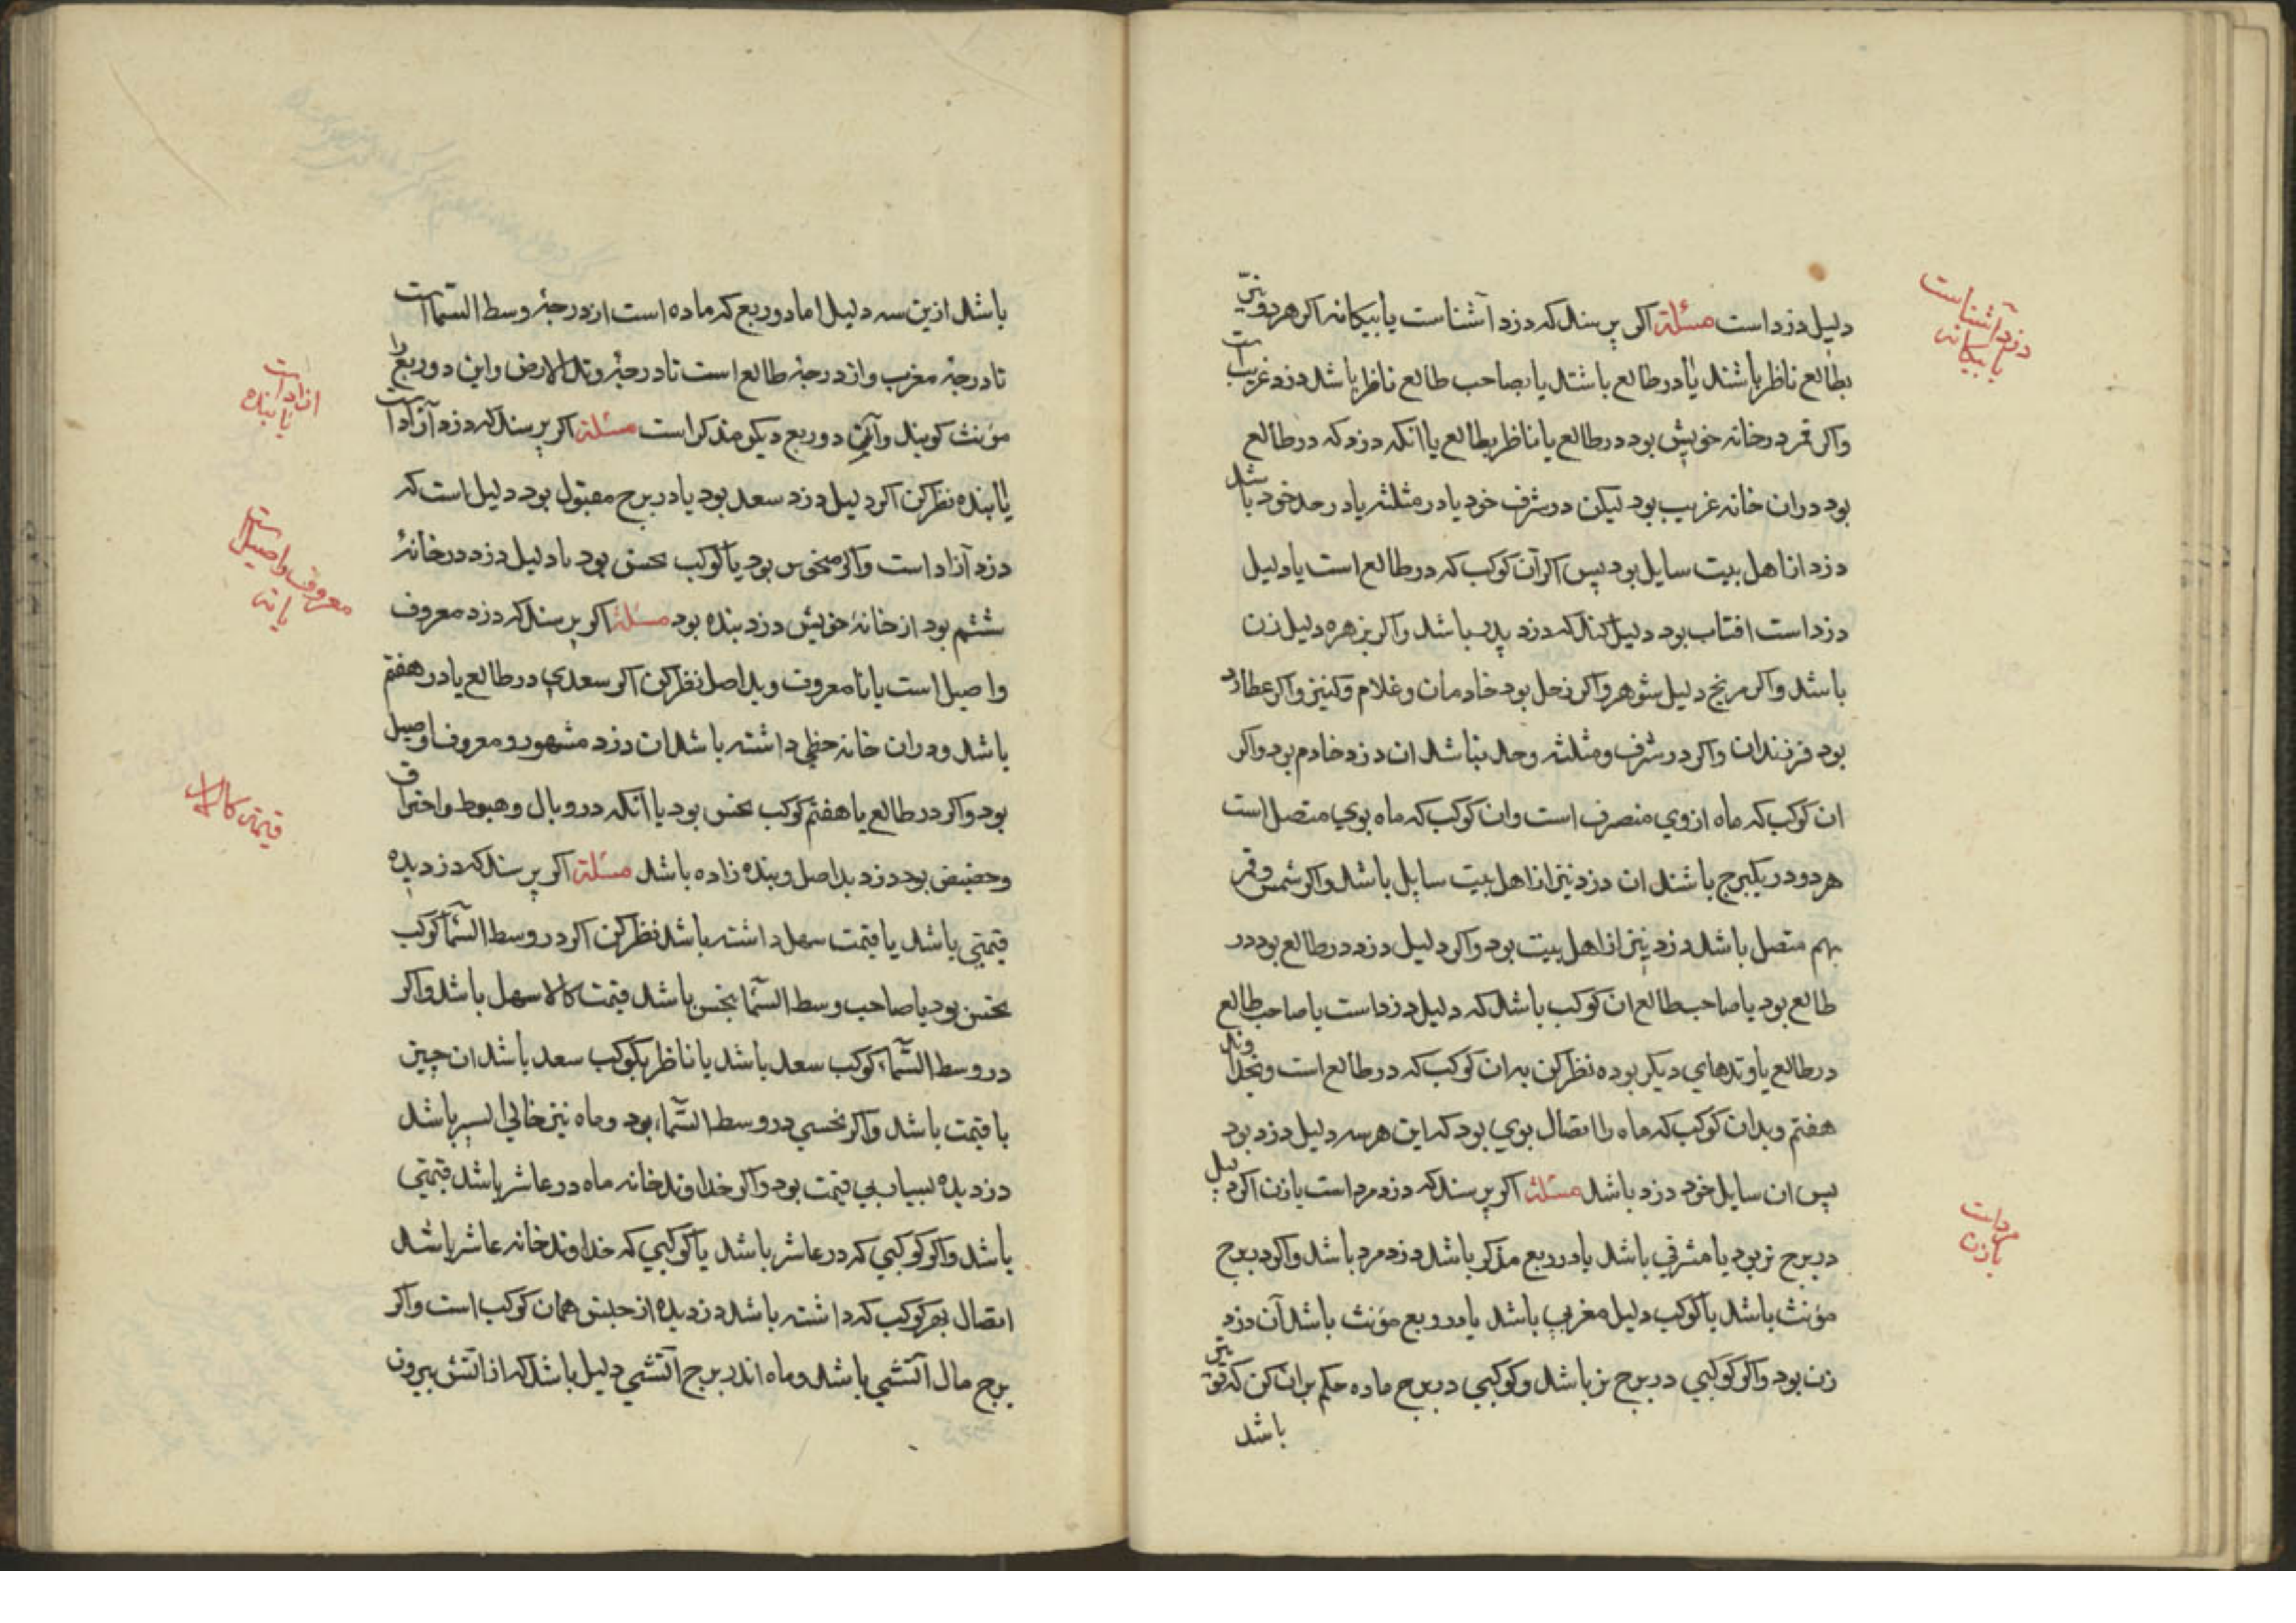 دلیل دزد است مسئلة اکر پرسند که دزد آشناست یا بیکانه اکر هر دو نیّر
بطالع ناظر باشند یا در طالع باشند یا بصاحب طالع ناظر باشد دزد غریب است
واکر قمر در خانه خویش بود در طالع یا ناظر بطالع یا انکه دزد که در طالع
بود دران خانه غریب بود لیکن در شرف خود یا در مثلثه یا در حد خود باشد
دزد از اهل بیت سایل بود پس اکر آن کوکب که در طالع است یا دلیل
دزد است افتاب بود دلیل کند که دزد پدر باشد واکر زهره دلیل زن
باشد واکر مریخ دلیل شوهر واکر زحل بود خادمان وغلام وکنیز واکر عطارد
بود فرزندان واکر در شرف ومثلثه وحد نباشد ان دزد خادم بود واکر
ان کوکب که ماه ازوي منصرف است وان کوکب که ماه بوي متصل است
هر دو در یکبرج باشند ان دزد نیز از اهل بیت سایل باشد واکر شمس وقمر
بهم متصل باشد دزد نیز از اهل بیت بود واکر دلیل دزد در طالع بود در
طالع بود یا صاحب طالع ان کوکب باشد که دلیل دزد است یا صاحب طالع
در طالع یا وتدهاي دیکر بوده نظر کن به ان کوکب که در طالع است وبخداوند
هفتم وبدان کوکب که ماه را اتصال بوي بود که این هر سه دلیل دزد بود
پس ان سایل خود دزد باشد مسئلة اکر پرسند که دزد مرد است یا زن اکر دلیل
در برج نر بود یا مشرقي باشد یا در ربع مذکر باشد دزد مرد باشد واکر در برج
مؤنث باشد یا کوکب دلیل مغربي باشد یا در ربع مؤنث باشد آن دزد
زن بود واکر کوکبي در برج نر باشد وکوکبي در برج ماده حکم بران کن که قویتر
باشد
دزد آشناست
یا بیکانه
مرد است
یا زن
باشد ازین سه دلیل اما دو ربع که ماده است از درجهٔ وسط السّما است
تا درجهٔ مغرب واز درجهٔ طالع است تا درجهٔ وتد الارض واین دو ربع را
مؤنث کویند وآن دو ربع دیکر مذکر است مسئلة اکر پرسند که دزد آزاد است
یا بنده نظر کن اکر دلیل دزد سعد بود یا در برج مقبول بود دلیل است که
دزد آزاد است واکر منحوس بود یا کوکب نحس بود یا دلیل دزد در خانهٔ
ششم بود از خانهٔ خویش دزد بنده بود مسئلة اکر پرسند که دزد معروف
واصیل است یا نامعروف وبد اصل نظر کن اکر سعدي در طالع یا در هفتم
باشد ودران خانه حظي داشته باشد ان دزد مشهور ومعروف واصیل
بود واکر در طالع یا هفتم کوکب نحس بود یا انکه در وبال وهبوط واحتراق
وحضیض بود دزد بد اصل وبنده زاده باشد مسئلة اکر پرسند که دزدیده
قیمتي باشد یا قیمت سهل داشته باشد نظر کن اکر در وسط السّما کوکب
نحس بود یا صاحب وسط السّما نحس باشد قیمت کالا سهل باشد واکر
در وسط السّماء کوکب سعد باشد یا ناظر بکوکب سعد باشد ان چیز
با قیمت باشد واکر نحسي در وسط السّماء بود وماه نیز خالي السیر باشد
دزدیده بسیار بي قیمت بود واکر خداوند خانه ماه در عاشر باشد قیمتي
باشد واکر کوکبي که در عاشر باشد یا کوکبي که خداوند خانه عاشر باشد
اتصال بهر کوکب که داشته باشد دزدیده از جنس همان کوکب است واکر
برج مال آتشي باشد وماه اندر برج آتشي دلیل باشد که از اتش بیرون
ازاد است
یا بنده
معروف واصیل است
یا نه
قیمت کالا